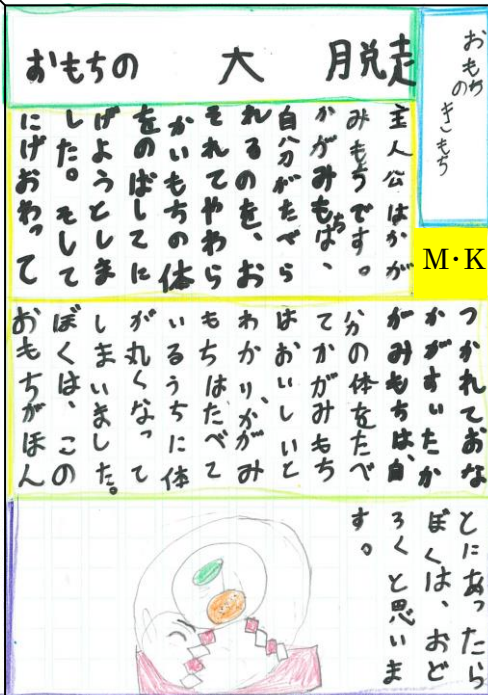 おもちのきもち
おもちの 大 脱走
M・K
主人公はかが
みもちです。
かがみもちは、
自分がたべら
れるのを、お
それてやわら
かいもちの体
をのばしてに
げようとしま
した。そして
にげおわって
つかれておな
かがすいたか
がみもちは、自
分の体をたべ
てかがみもち
はおいしいと
わかり、かがみ
もちはたべて
いるうちに体
が丸くなって
しまいました。
ぼくは、この
おもちがほん
とにあったら
ぼくは、おど
ろくと思いま
す。